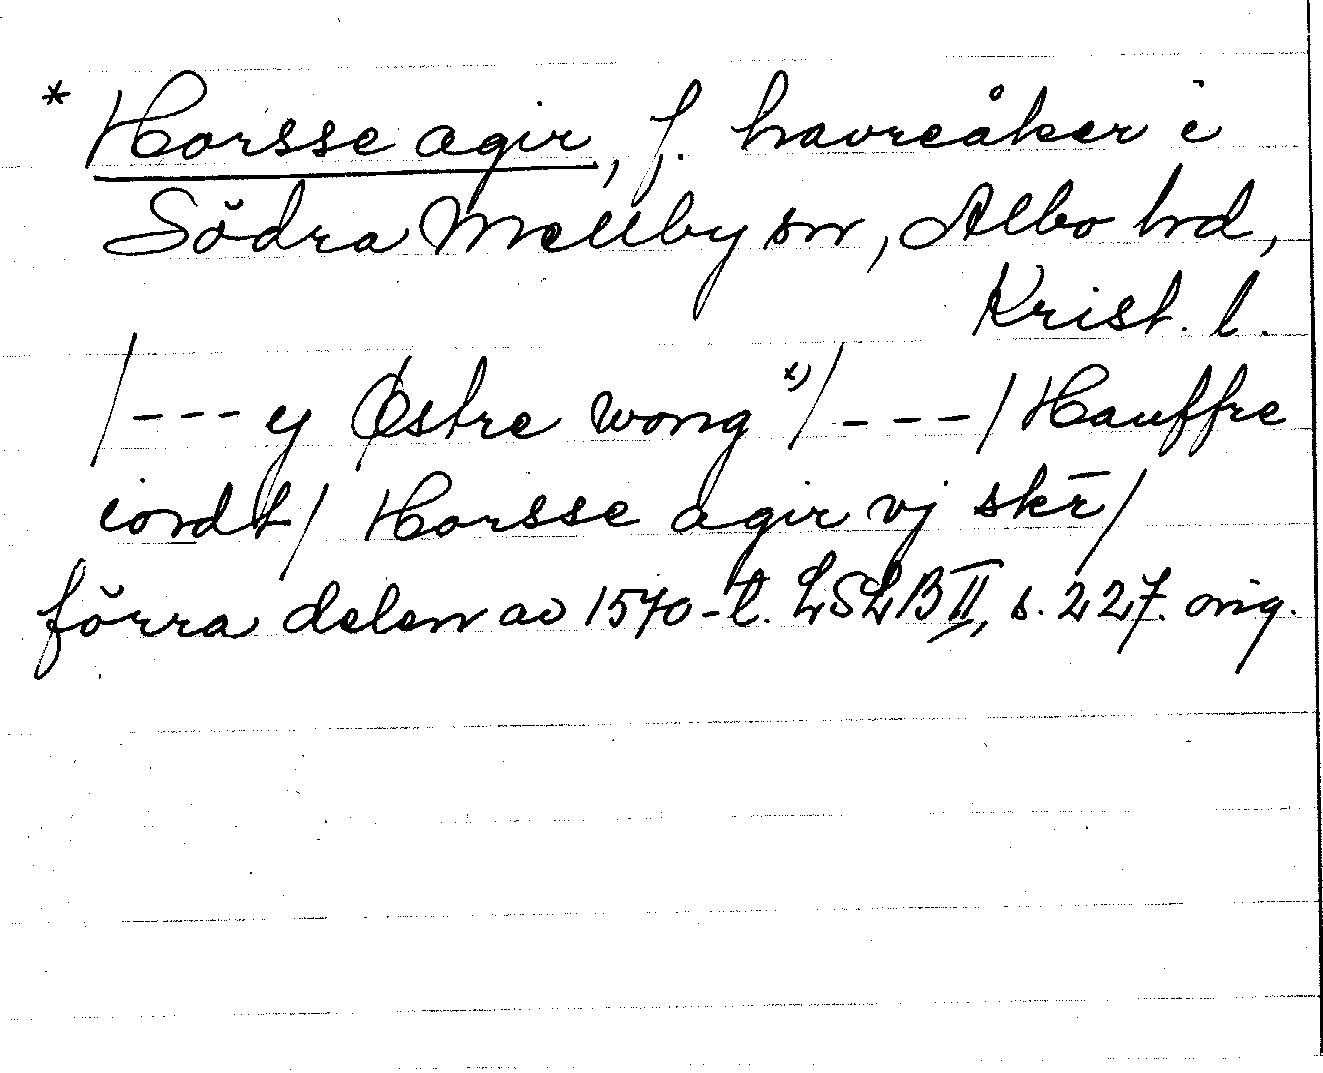 * Horsse agir, f. havreåker i
Södra Mellby sn, Albo hd,
Krist. l.
/--- ej Østre wong x)/ ---/ Hauffre
iordt/ Horsse agir vj skē/
förra delen av 1570-t. LSLB II, s. 227. orig.